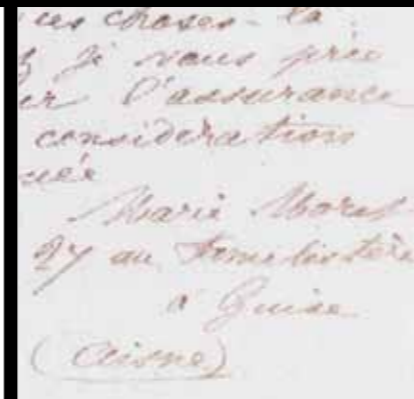 ces choses-là
& je vous prie
er l'assurance
considération
uée
Marie Moret
27 au Familistère
à Guise
(Aisne)